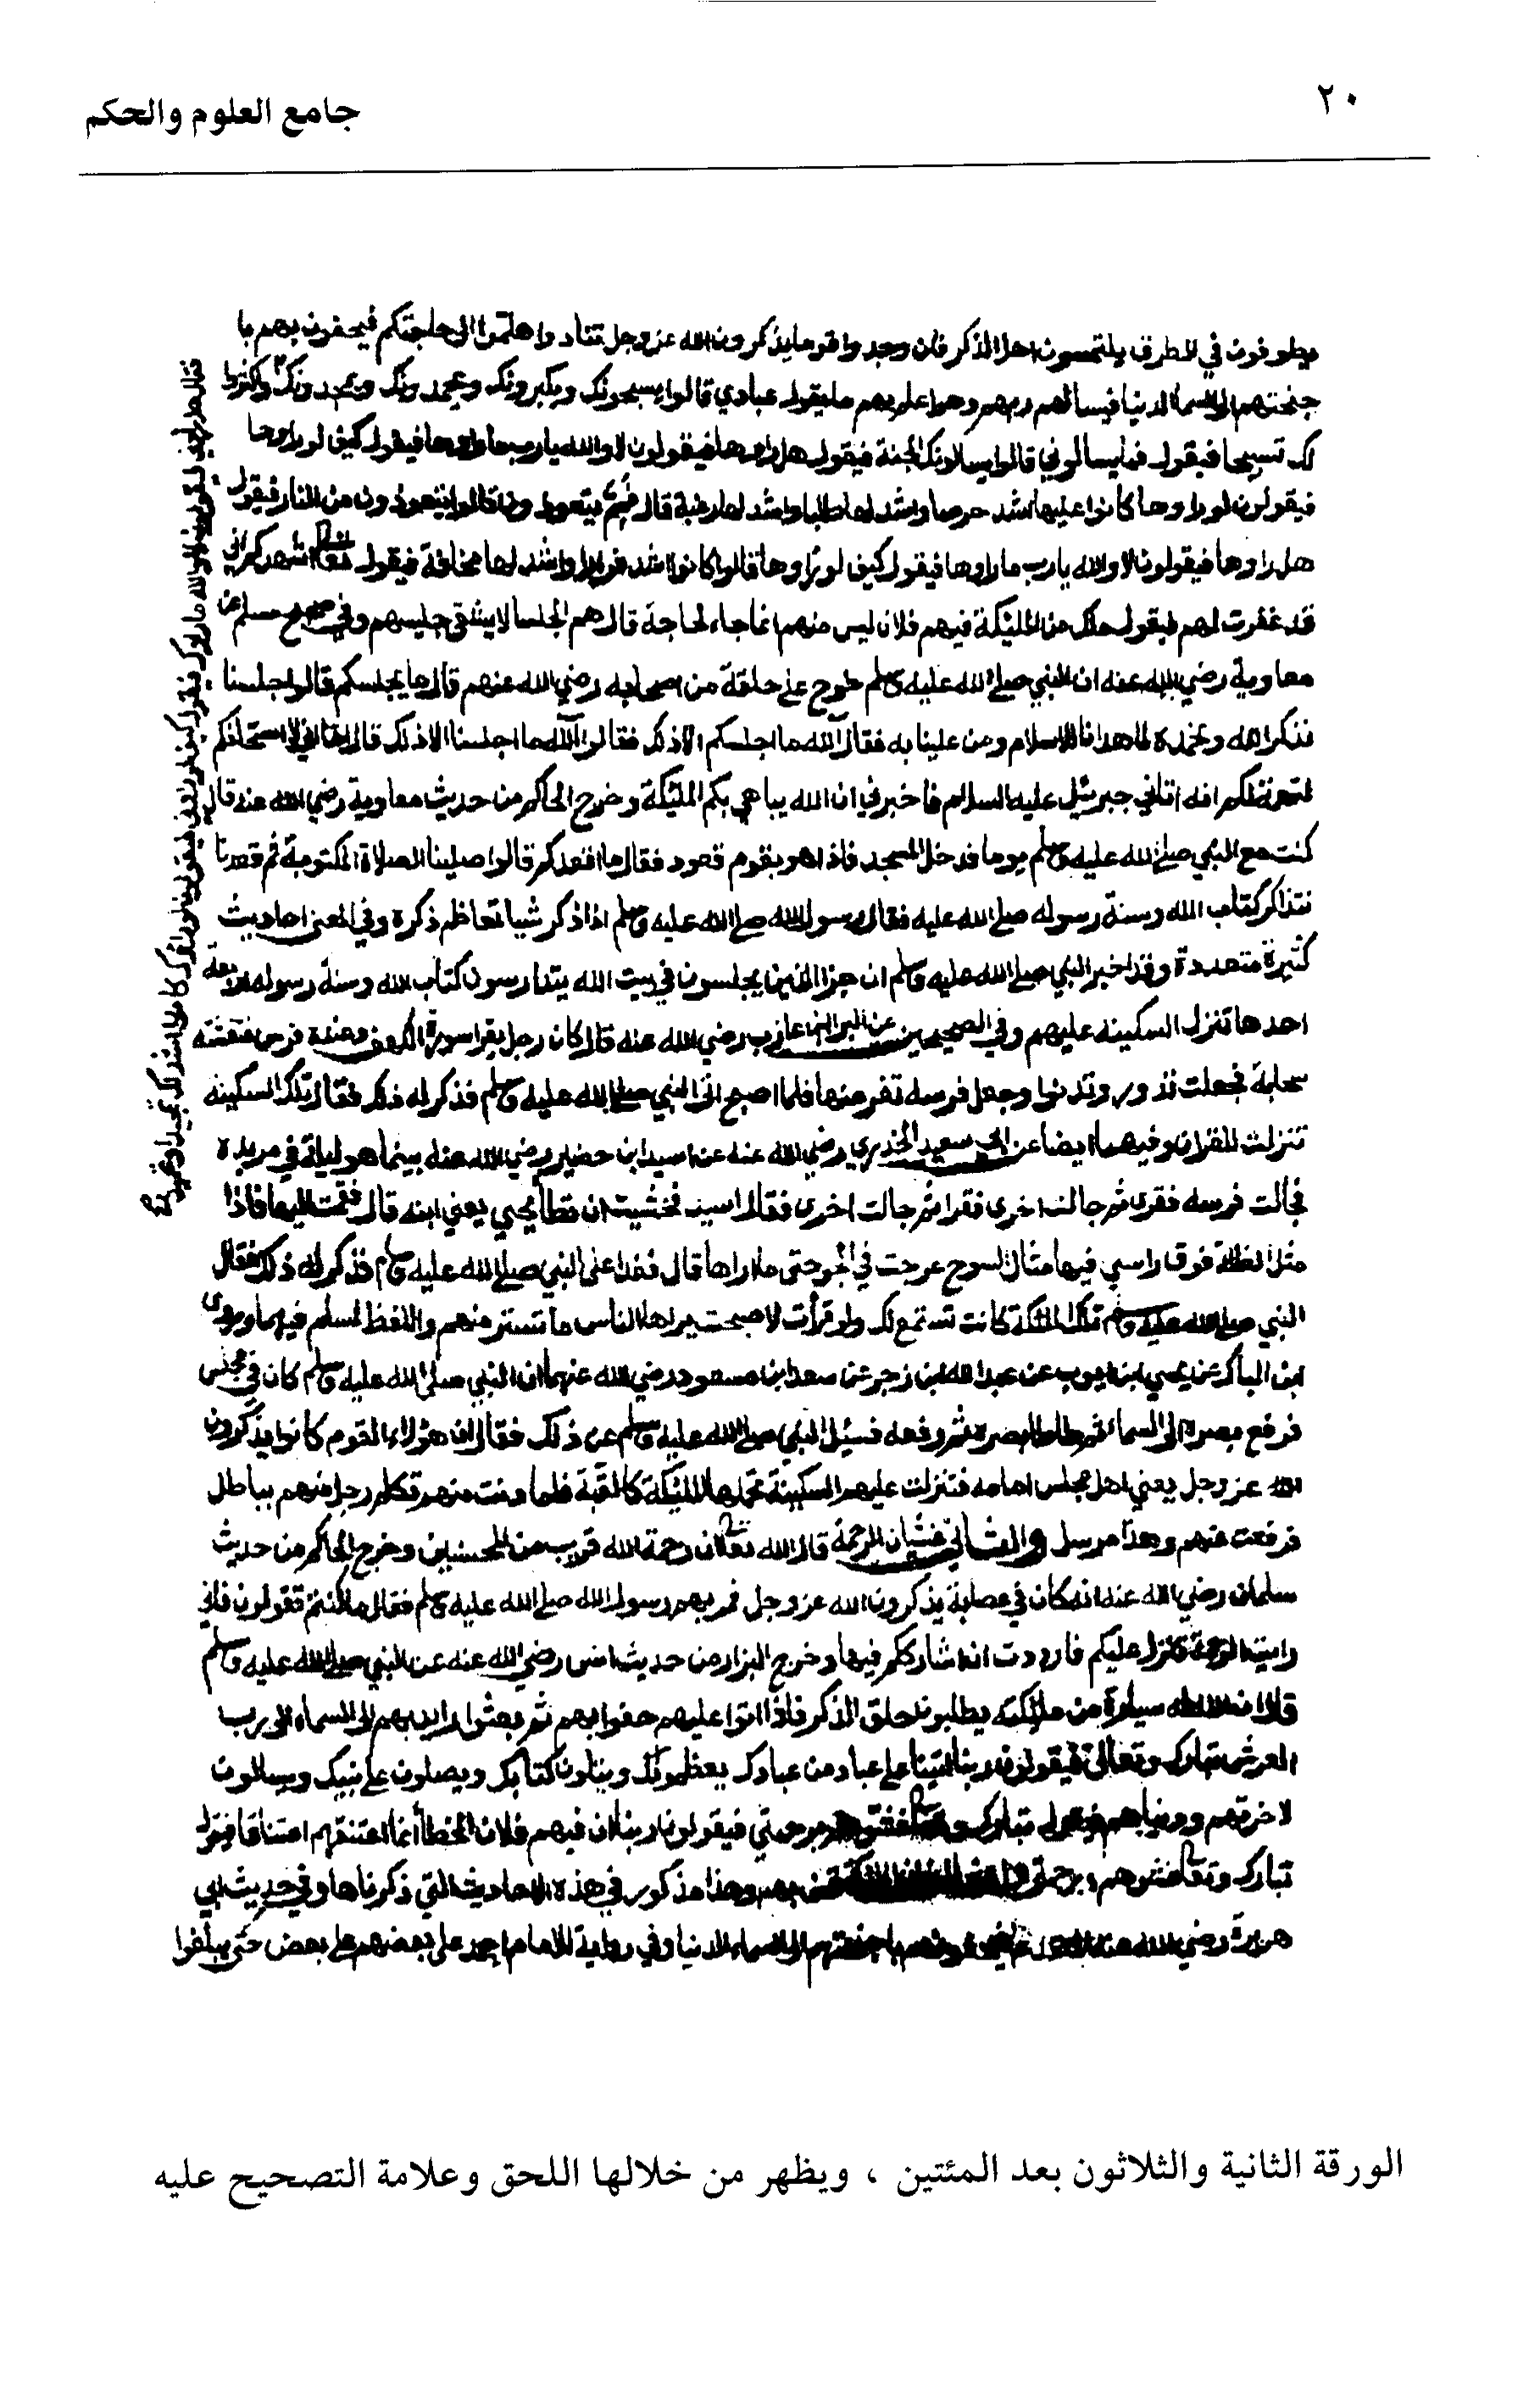 ٢٠
جامع العلوم والحكم
يطوفون في الطرق يلتمسون اهل الذكر فان وجدوا قوما يذكرون الله عز وجل تنادوا هلموا الى حاجتكم فيحفونهم با
جنحتهم الى السما الدنيا فيسالهم ربهم وهو اعلم بهم ما يقول عبادي قالوا يسبحونك ويكبرونك ويحمدونك ويمجدونك
لك تسبيحا فيقول فما يسالوني قالوا يسالونك الجنة فيقول هل راوها فيقولون لا والله يا رب ما راوها فيقول كيف لو راوها
فيقولون لو راوها كانوا عليها اشد حرصا واشد لها طلبا واشد لها رغبة قال فمم يتعوذون قالوا يتعوذون من النار فيقول
هل راوها فيقولون لا والله يا رب ما راوها فيقول كيف لو راوها قالوا كانوا اشد فرارا واشد لها مخافة فيقول اشهدكم اني
قد غفرت لهم فيقول ملك من المليكة فيهم فلان ليس منهم انما جاء لحاجة قال هم الجلسا لا يشقى جليسهم وفي صحيح مسلم عن
معاوية رضي الله عنه ان النبي صلى الله عليه وسلم خرج على حلقة من اصحابه رضي الله عنهم قال ما يجلسكم قالوا جلسنا
نذكر الله ونحمده لما هدانا للاسلام ومن علينا به فقال آلله ما اجلسكم الا ذلك فقالوا آلله ما اجلسنا الا ذلك قال اما اني لم استحلفكم
لتهمة لكم انه اتاني جبرئيل عليه السلام فاخبرني ان الله يباهي بكم المليكة وخرج الحاكم من حديث معاوية رضي الله عنه قال
كنت مع النبي صلى الله عليه وسلم يوما فدخل المسجد فاذا هو بقوم قعود فقال ما اقعدكم قالوا صلينا الصلاة المكتوبة ثم قعدنا
نتذاكر كتاب الله وسنة رسوله صلى الله عليه فقال رسول الله صلى الله عليه وسلم اذا ذكر شيا تعاظم ذكره وفي المعنى احاديث
كثيرة متعددة وقد اخبر النبي صلى الله عليه وسلم ان جزا الذين يجلسون في بيت الله يتدارسون كتاب الله وسنة رسوله اربعة
احدها تنزل السكينة عليهم وفي الصحيحين عن البرا ابن عازب رضي الله عنه قال كان رجل يقرا سورة الكهف وعنده فرس فتغشته
سحابة فجعلت تدور وتدنوا وجعل فرسه تنفر منها فلما اصبح اتى النبي صلى الله عليه وسلم فذكر له ذلك فقال تلك السكينة
تنزلت للقران وفيهما ايضا عن ابي سعيد الخدري رضي الله عنه عن اسيد ابن حضير رضي الله عنه بينما هو ليلة في مربده
فجالت فرسه فقرى ثم جالت اخرى فقرا ثم جالت اخرى فقال اسيد فخشيت ان تطأ يحيى يعني ابنه قال فقمت اليها فاذا
مثل الظلة فوق راسي فيها مثال السرج عرجت في الجو حتى ما اراها قال فغدا على النبي صلى الله عليه وسلم فذكر له ذلك فقال
النبي صلى الله عليه وسلم تلك المليكة كانت تستمع لك ولو قرأت لاصبحت يراها الناس ما تستتر منهم واللفظ لمسلم فيهما وروى
ابن المبارك عن يحيى ابن ايوب عن عبد الله ابن زحر عن سعد ابن مسعود رضي الله عنهما ان النبي صلى الله عليه وسلم كان في مجلس
فرفع بصره الى السماء ثم طاطا بصره ثم رفعه فسئل النبي صلى الله عليه وسلم عن ذلك فقال ان هؤلاء القوم كانوا يذكرون
الله عز وجل يعني اهل مجلس امامه فتنزلت عليهم السكينة تحملها المليكة كالقبة فلما دنت منهم تكلم رجل منهم بباطل
فرفعت عنهم وهذا مرسل والثاني غشيان الرحمة قال الله تعالى ان رحمة الله قريب من المحسنين وخرج الحاكم من حديث
سلمان رضي الله عنه انه كان في عصابة يذكرون الله عز وجل فمر بهم رسول الله صلى الله عليه وسلم فقال ما كنتم تقولون فاني
رايت الرحمة تنزل عليكم فاردت ان اشارككم فيها وخرج البزار من حديث انس رضي الله عنه عن النبي صلى الله عليه وسلم
قال ان لله سيارة من ملائكته يطلبون حلق الذكر فاذا اتوا عليهم حفوا بهم ثم بعثوا رايدهم الى السماء الى رب
العرش تبارك وتعالى فيقولون ربنا اتينا على عباد من عبادك يعظمون ويتلون كتابك ويصلون على نبيك ويسالون
لاخرتهم ودنياهم فيقول تبارك وتعالى رحمتي فيقولون ربنا ان فيهم فلان الخطأ انما اعتنقهم اعتناقا فيقول
تبارك وتعالى غشوهم برحمتي وهذا مذكور في هذه الاحاديث التي ذكرناها وفي حديث ابي
هريرة رضي الله عنه باجنحتهم الى السماء الدنيا وفي رواية للامام احمد على بعضهم على بعض حتى يبلغوا
الورقة الثانية والثلاثون بعد المئتين ، ويظهر من خلالها اللحق وعلامة التصحيح عليه